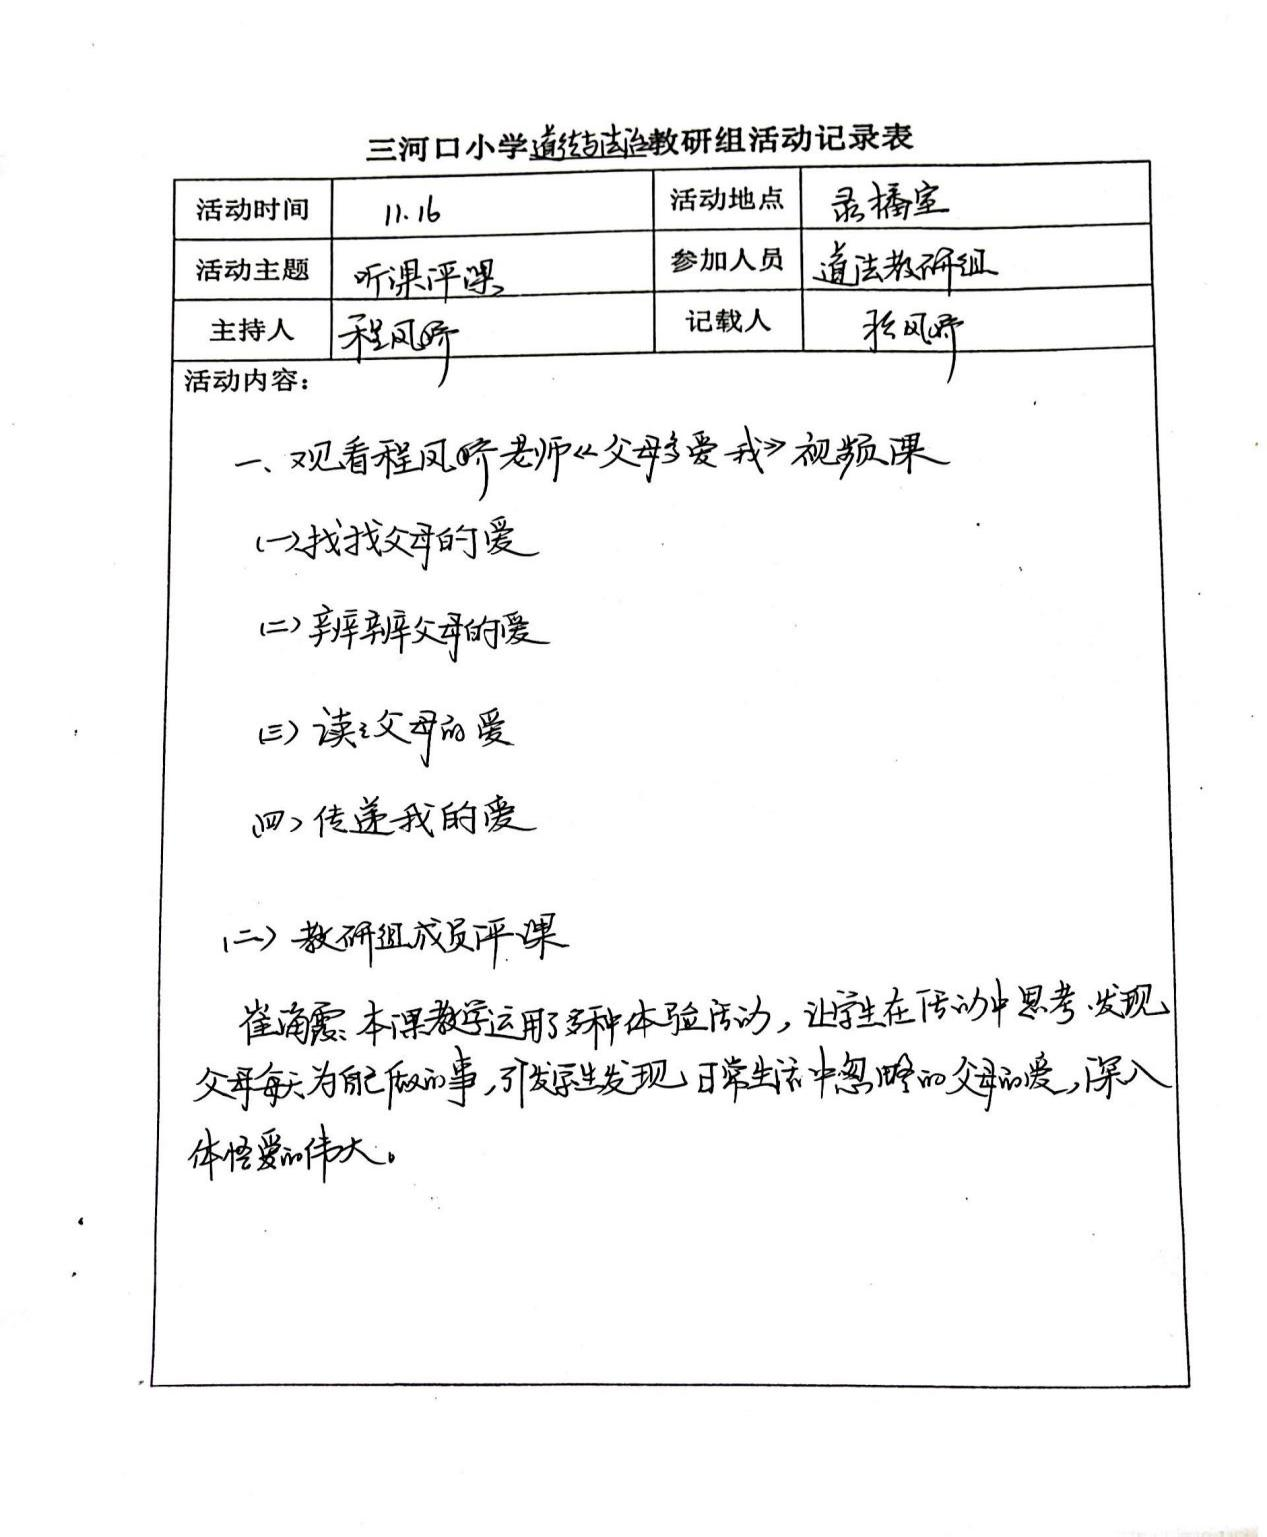 三河口小学道德与法治教研组活动记录表
活动时间 11.16 活动地点 录播室
活动主题 听课评课 参加人员 道法教研组
主持人 程凤娇 记载人 程凤娇
活动内容：
一、观看程凤娇老师《父母多爱我》视频课
(一)找找父母的爱
(二)辨辨父母的爱
(三)读读父母的爱
(四)传递我的爱
(二)教研组成员评课
崔海霞：本课教学运用了多种体验活动，让学生在活动中思考、发现
父母每天为自己做的事，引发学生发现日常生活中忽略的父母的爱，深入
体悟爱的伟大。